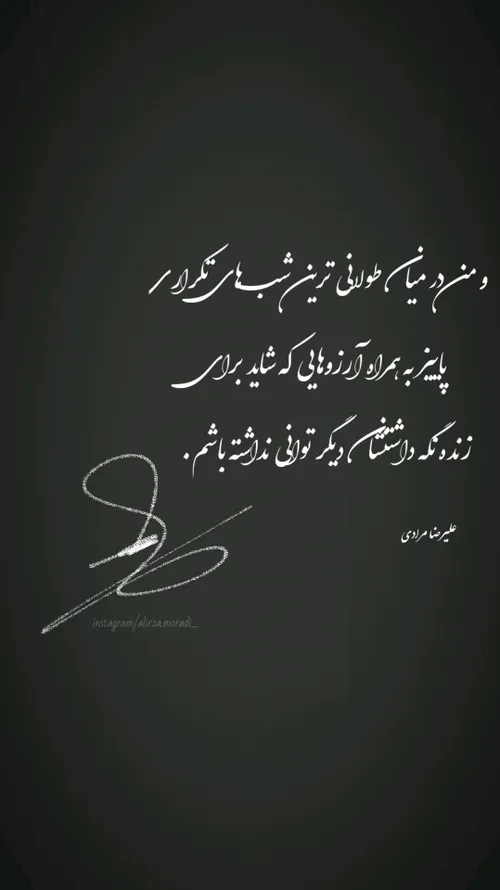 و من در میان طولانی ترین شب‌های تکراری
پاییز به همراه آرزوهایی که شاید برای
زنده نگه داشتنشان دیگر توانی نداشته باشم .
علیرضا مرادی
instagram/alirza.moradi_